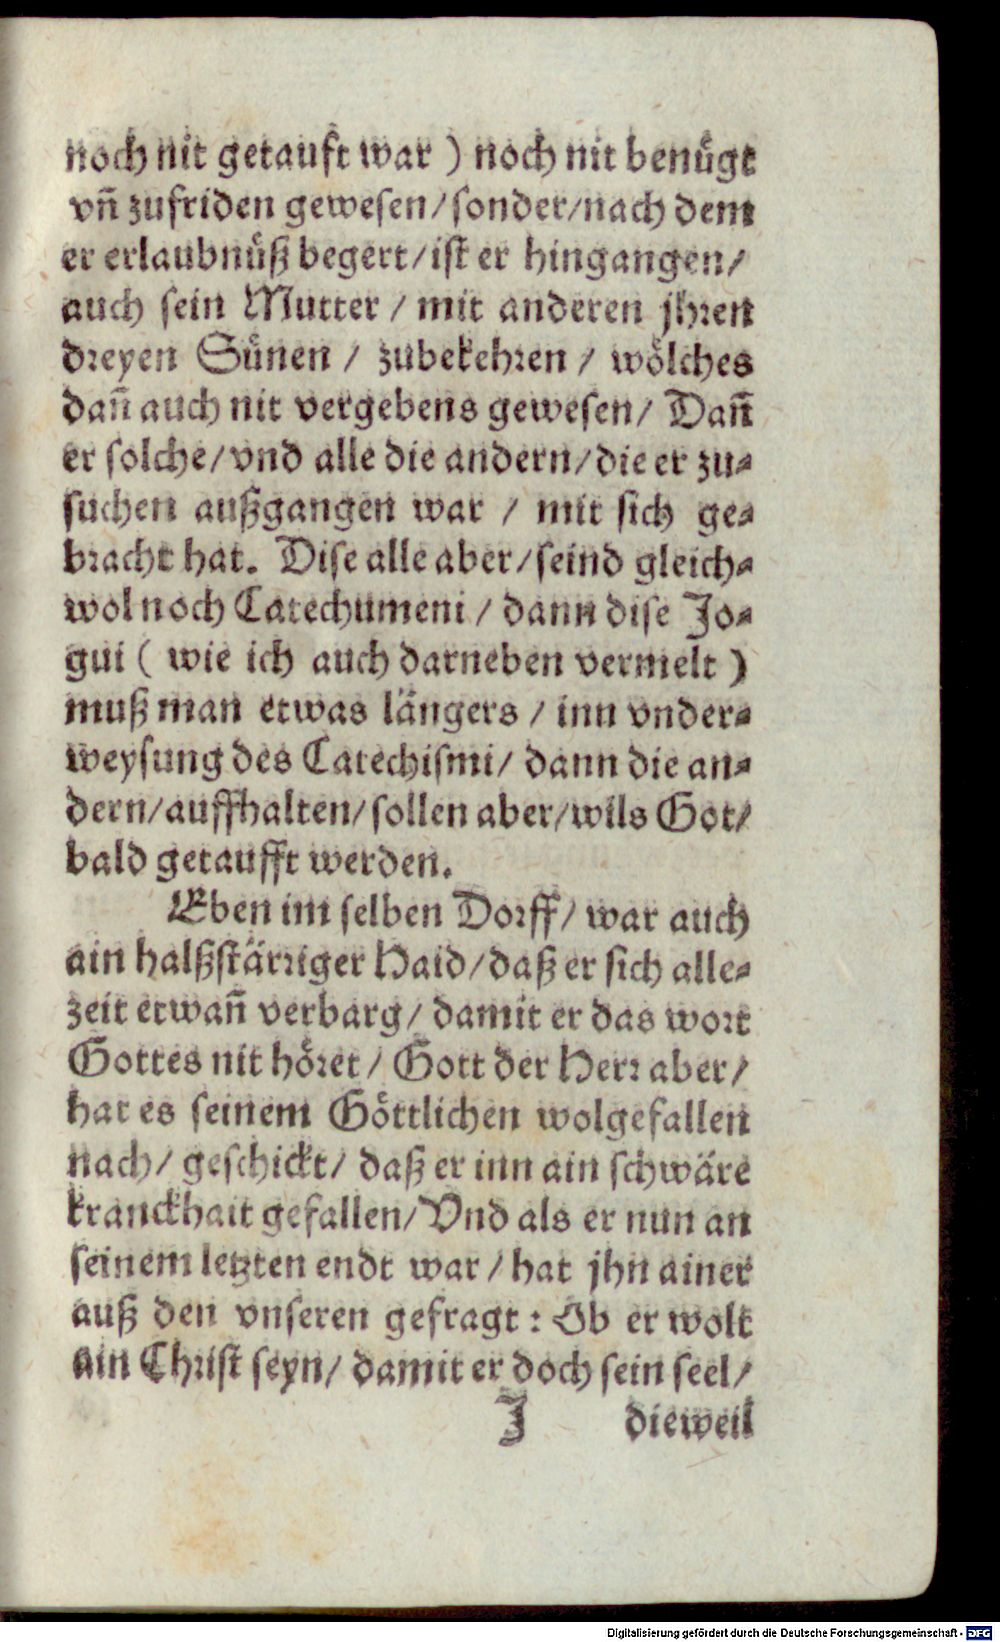 noch nit getauft war) noch nit benügt
vñ zufriden gewesen/sonder/nach dem
er erlaubnüß begert/ist er hingangen/
auch sein Mutter/ mit anderen jhren
dreyen Sünen/ zubekehren/ wölches
dañ auch nit vergebens gewesen/ Dañ
er solche/vnd alle die andern/die er zu⸗
suchen außgangen war/ mit sich ge⸗
bracht hat. Dise alle aber/seind gleich⸗
wol noch Catechumeni/ dann dise Jo⸗
gui (wie ich auch darneben vermelt)
muß man etwas längers/ inn vnder⸗
weysung des Catechismi/ dann die an⸗
dern/auffhalten/sollen aber/wils Got/
bald getaufft werden.
Eben im selben Dorff/ war auch
ain halßstärriger Haid/daß er sich alle⸗
zeit etwañ verbarg/ damit er das wort
Gottes nit höret/ Gott der Herr aber/
hat es seinem Göttlichen wolgefallen
nach/ geschickt/ daß er inn ain schwäre
kranckhait gefallen/Vnd als er nun an
seinem letzten endt war/hat jhn ainer
auß den vnseren gefragt: Ob er wolt
ain Christ seyn/ damit er doch sein seel/
J dieweil
Digitalisierung gefördert durch die Deutsche Forschungsgemeinschaft - DFG